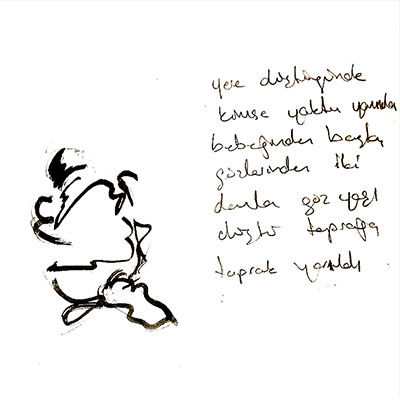 yere düştüğünde
kimse yoktu yanında
bebeğinden başka
gözlerinden iki
damla göz yaşı
düştü toprağa
toprak yarıldı